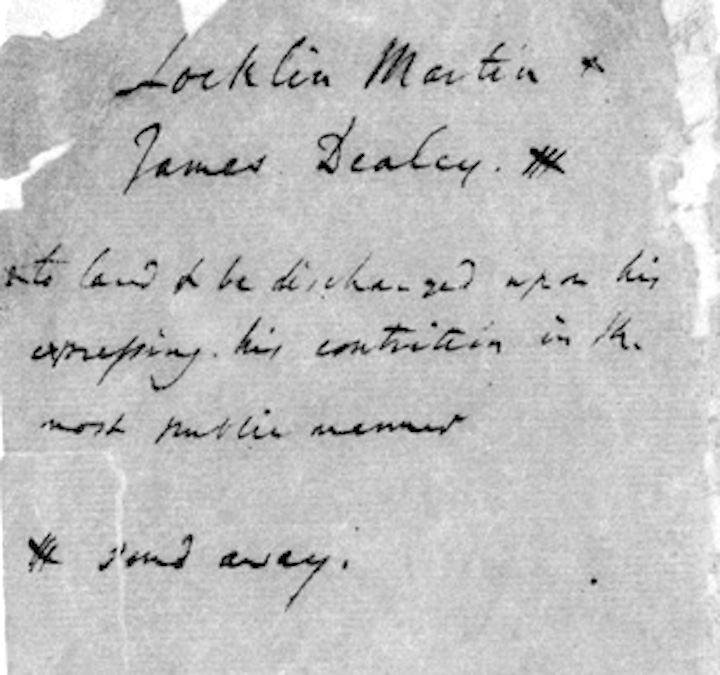 Locklin Martin *
James Dealey. ⁂
land & be discharged upon his
expressing his contrition in the
most public manner
⁂ send away.